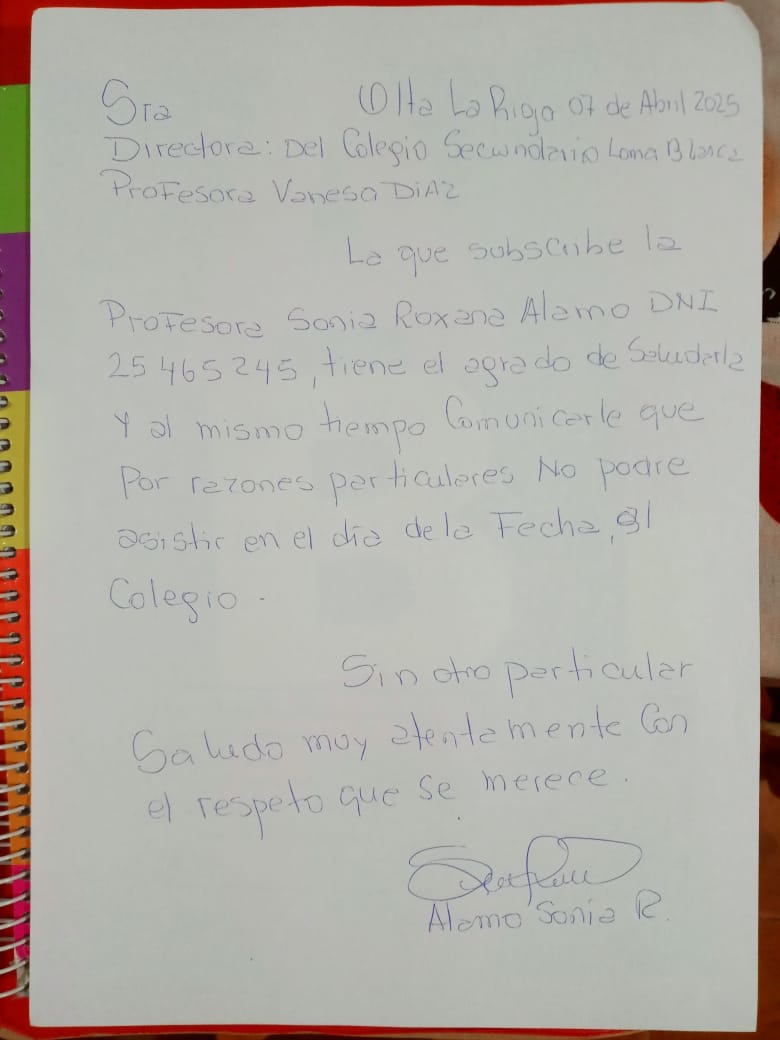 Sra Olta La Rioja 07 de Abril 2025
Directora: Del Colegio Secundario Loma Blanca
Profesora Vanesa DIAZ
La que subscribe la
Profesora Sonia Roxana Alamo DNI
25 465 245, tiene el agrado de Saludarla
Y al mismo tiempo Comunicarle que
Por razones particulares No podre
asistir en el día de la Fecha, al
Colegio.
Sin otro particular
Saludo muy atentamente Con
el respeto que se merece.
Alamo Sonia R.